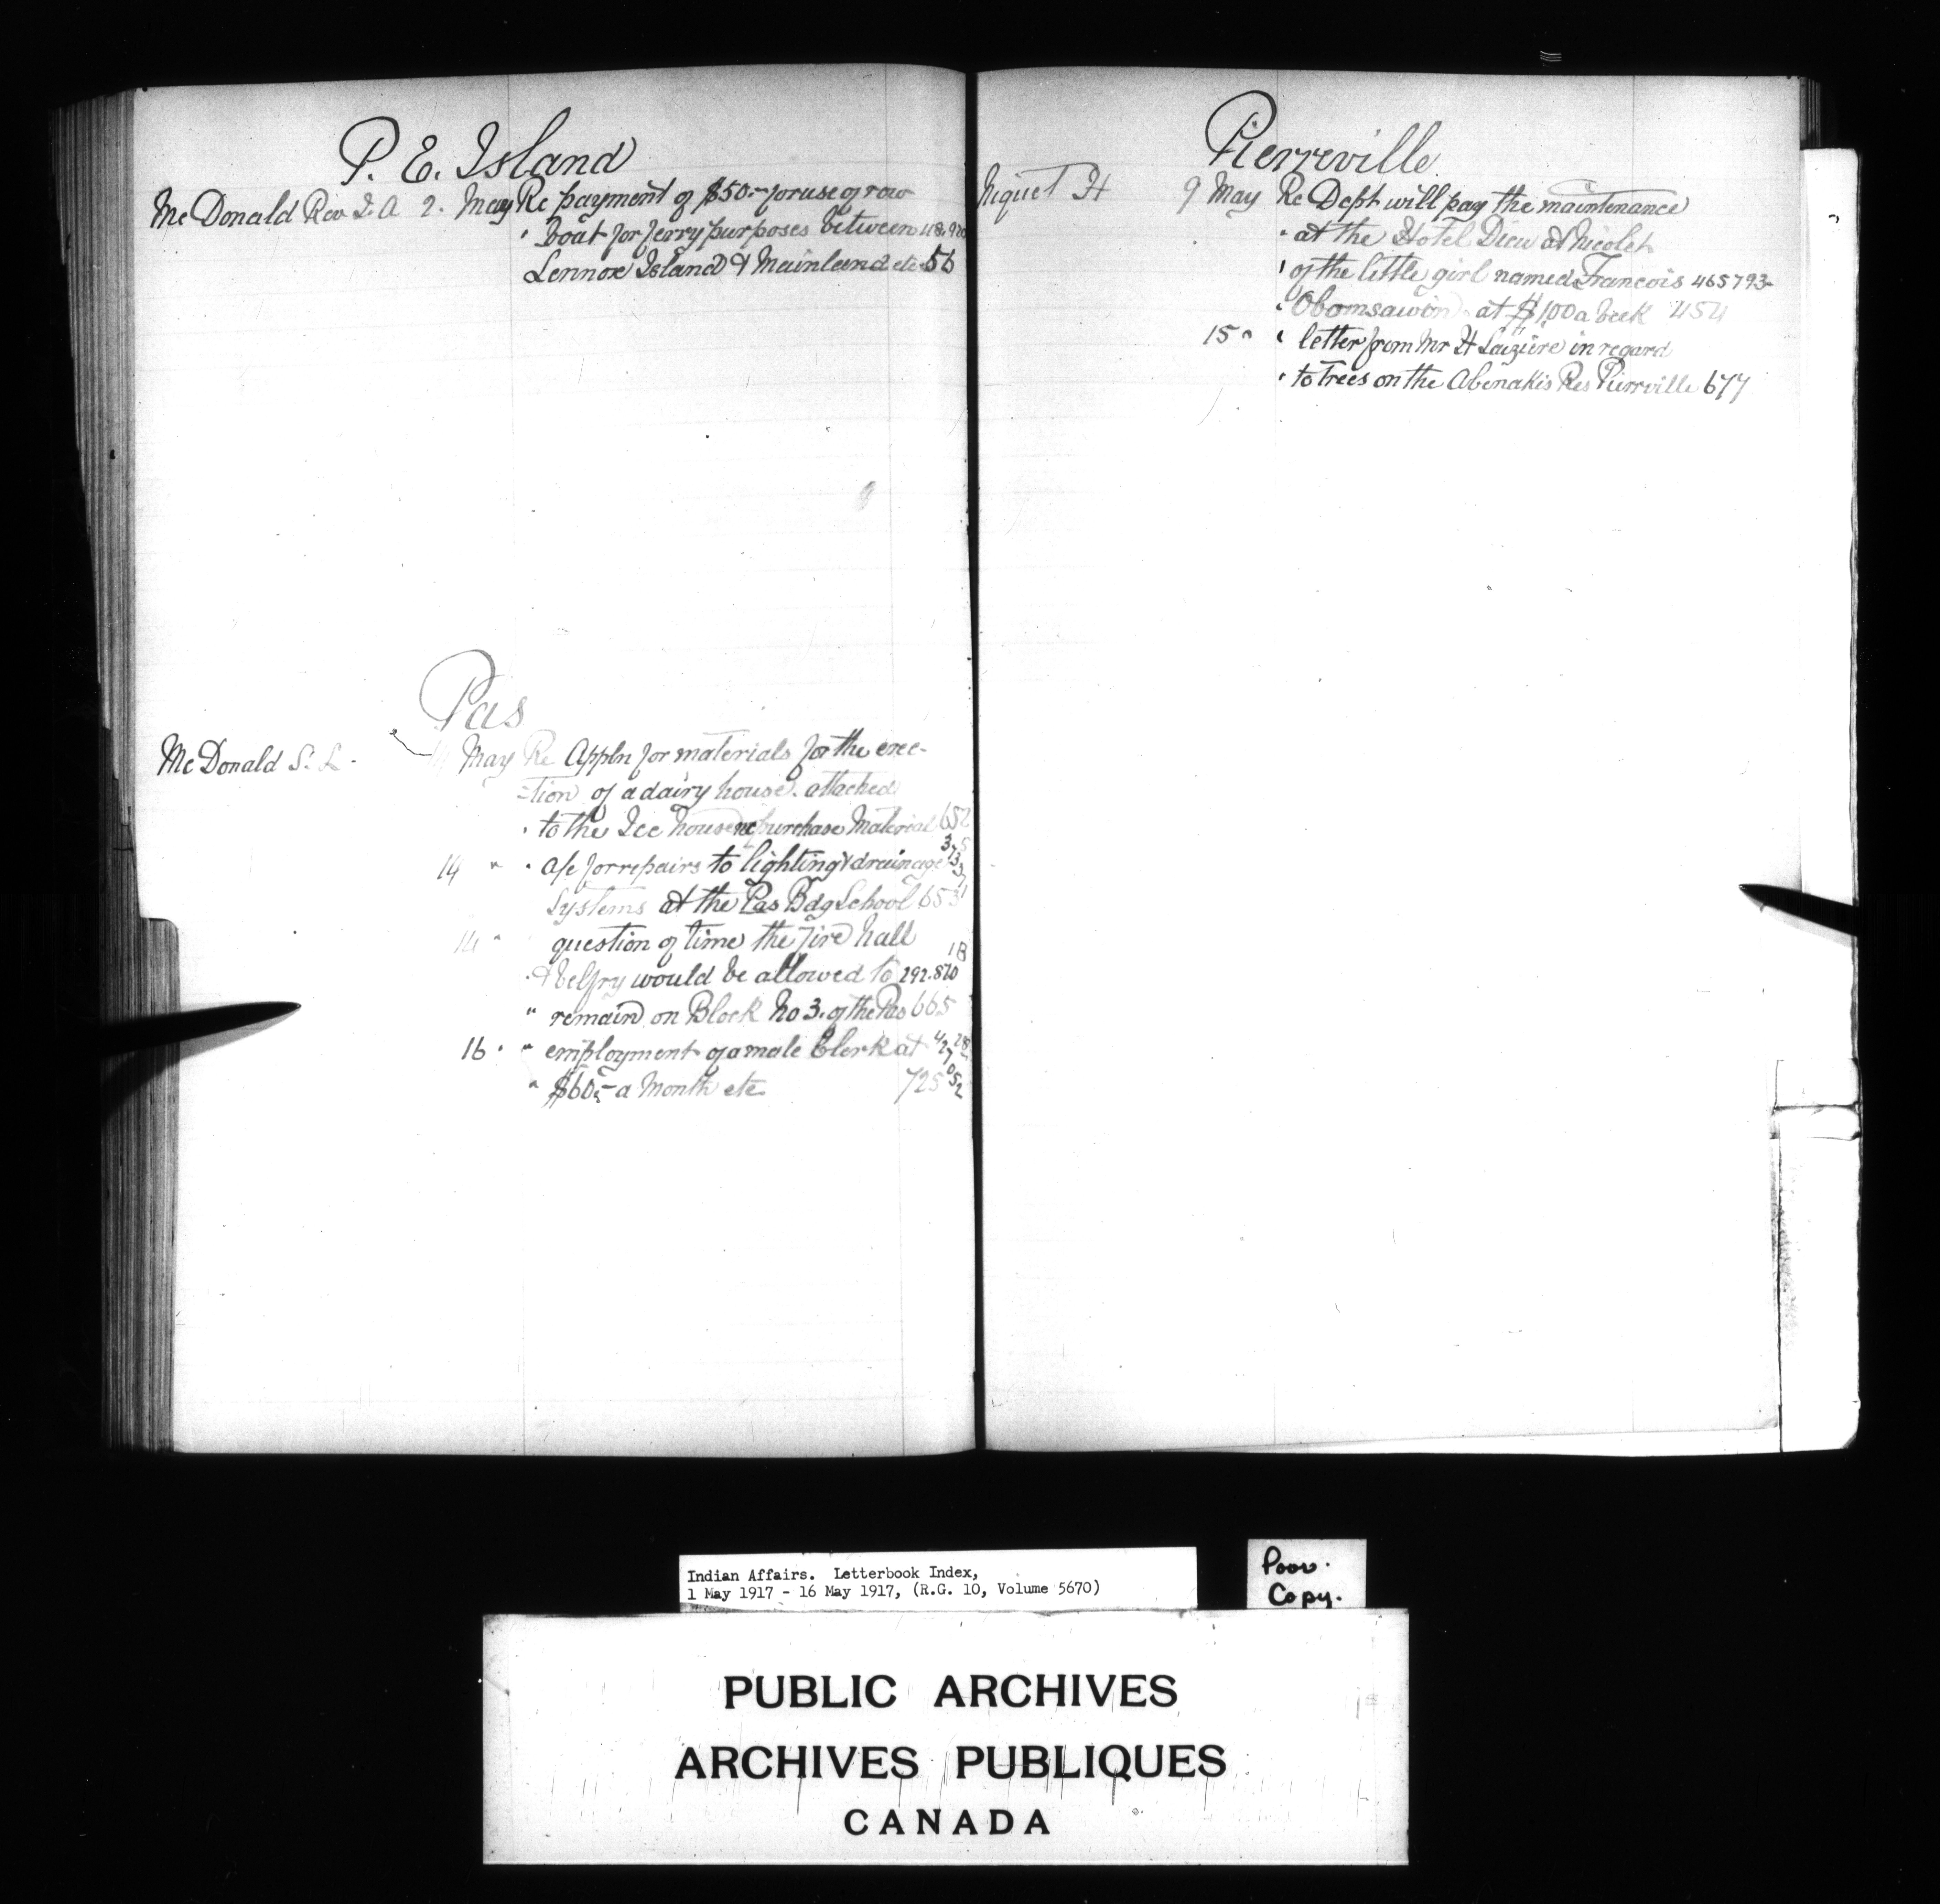 P. E. Island
McDonald Rev I. A 2. May Re payment of $50.- for use of row
" boat for ferry purposes between 48.920
Lennox Island & Mainland etc 56
Pas
McDonald S. L. 14 May Re Appln for materials for the erec-
-tion of a dairy house attached
" to the Ice house purchase Material 652
14 " " a/c for repairs to lighting & drainage
Systems at the Pas Bdg School 653
14 " question of time the Fire hall
" & belfry would be allowed to 292.870
" remain on Block No 3. of the Pas 665
16 " " employment of a male Clerk at
" $60.- a Month etc 725
Pierreville
Niquet H 9 May Re Dept will pay the maintenance
" at the Hotel Dieu at Nicolet
" of the little girl named Francois 465793-
" Obomsawin at $1.00 a week 454
15 " " letter from Mr H in regard
" to trees on the Abenakis Res Pierrville 677
Indian Affairs. Letterbook Index,
1 May 1917 - 16 May 1917, (R.G. 10, Volume 5670)
Poor.
Copy.
PUBLIC ARCHIVES
ARCHIVES PUBLIQUES
CANADA